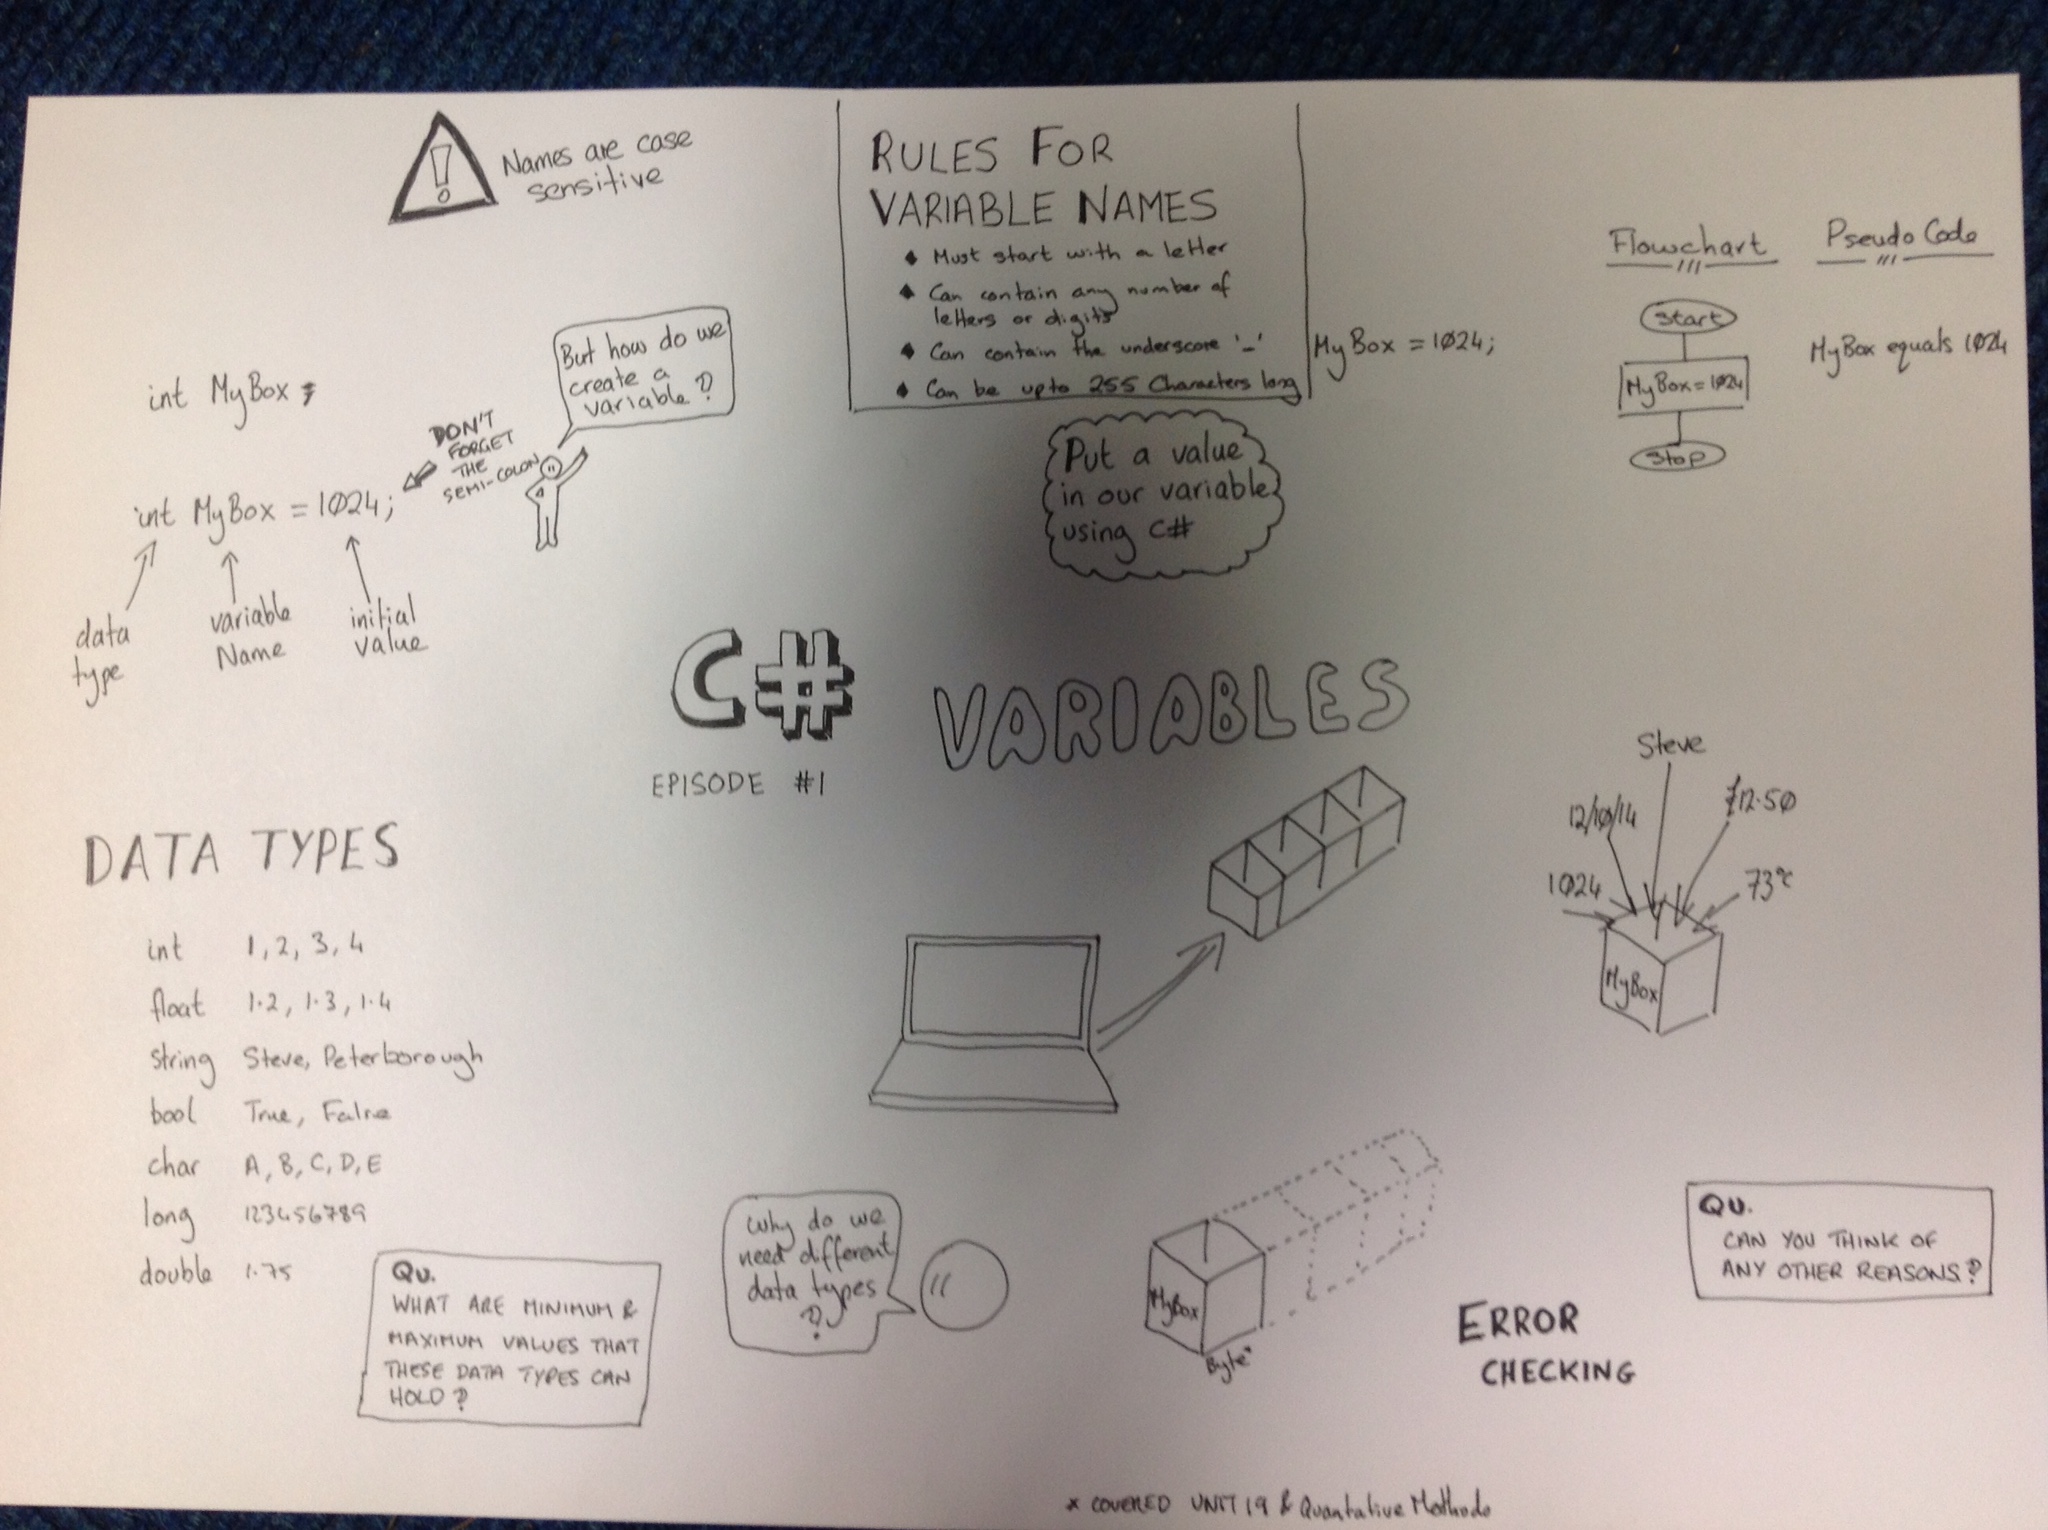 Names are case
sensitive
RULES FOR
VARIABLE NAMES
◆ Must start with a letter
◆ Can contain any number of
letters or digits
◆ Can contain the underscore '_'
◆ Can be upto 255 Characters long
Flowchart
Start
MyBox = 1024
Stop
Pseudo Code
MyBox equals 1024
MyBox = 1024;
Put a value
in our variable
using C#
But how do we
create a
variable?
int MyBox;
DON'T
FORGET
THE
SEMI-COLON
int MyBox = 1024;
data
type
variable
Name
initial
value
C#
EPISODE #1
VARIABLES
DATA TYPES
int 1, 2, 3, 4
float 1.2, 1.3, 1.4
string Steve, Peterborough
bool True, False
char A, B, C, D, E
long 123456789
double 1.75
Qu.
WHAT ARE MINIMUM &
MAXIMUM VALUES THAT
THESE DATA TYPES CAN
HOLD?
Why do we
need different
data types
?
Steve
12/10/14
£12.50
1024
73°C
MyBox
MyBox
Byte*
ERROR
CHECKING
QU.
CAN YOU THINK OF
ANY OTHER REASONS?
* COVERED UNIT 19 & Quantative Methods